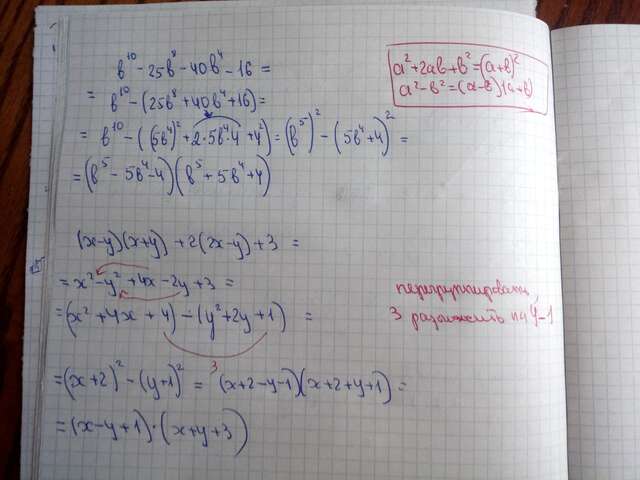 b¹⁰ - 25b⁸ - 40b⁴ - 16 =
= b¹⁰ - (25b⁸ + 40b⁴ + 16) =
= b¹⁰ - ((5b⁴)² + 2·5b⁴4 + 4²) = (b⁵)² - (5b⁴ + 4)² =
= (b⁵ - 5b⁴ - 4)(b⁵ + 5b⁴ + 4)
a² + 2ab + b² = (a + b)²
a² - b² = (a - b)(a + b)
(x - y)(x + y) + 2(2x - y) + 3 =
= x² - y² + 4x - 2y + 3 =
= (x² + 4x + 4) - (y² + 2y + 1) =
перегруппировать,
3 разложить на 4 - 1
3
= (x + 2)² - (y + 1)² = (x + 2 - y - 1)(x + 2 + y + 1) =
= (x - y + 1)·(x + y + 3)